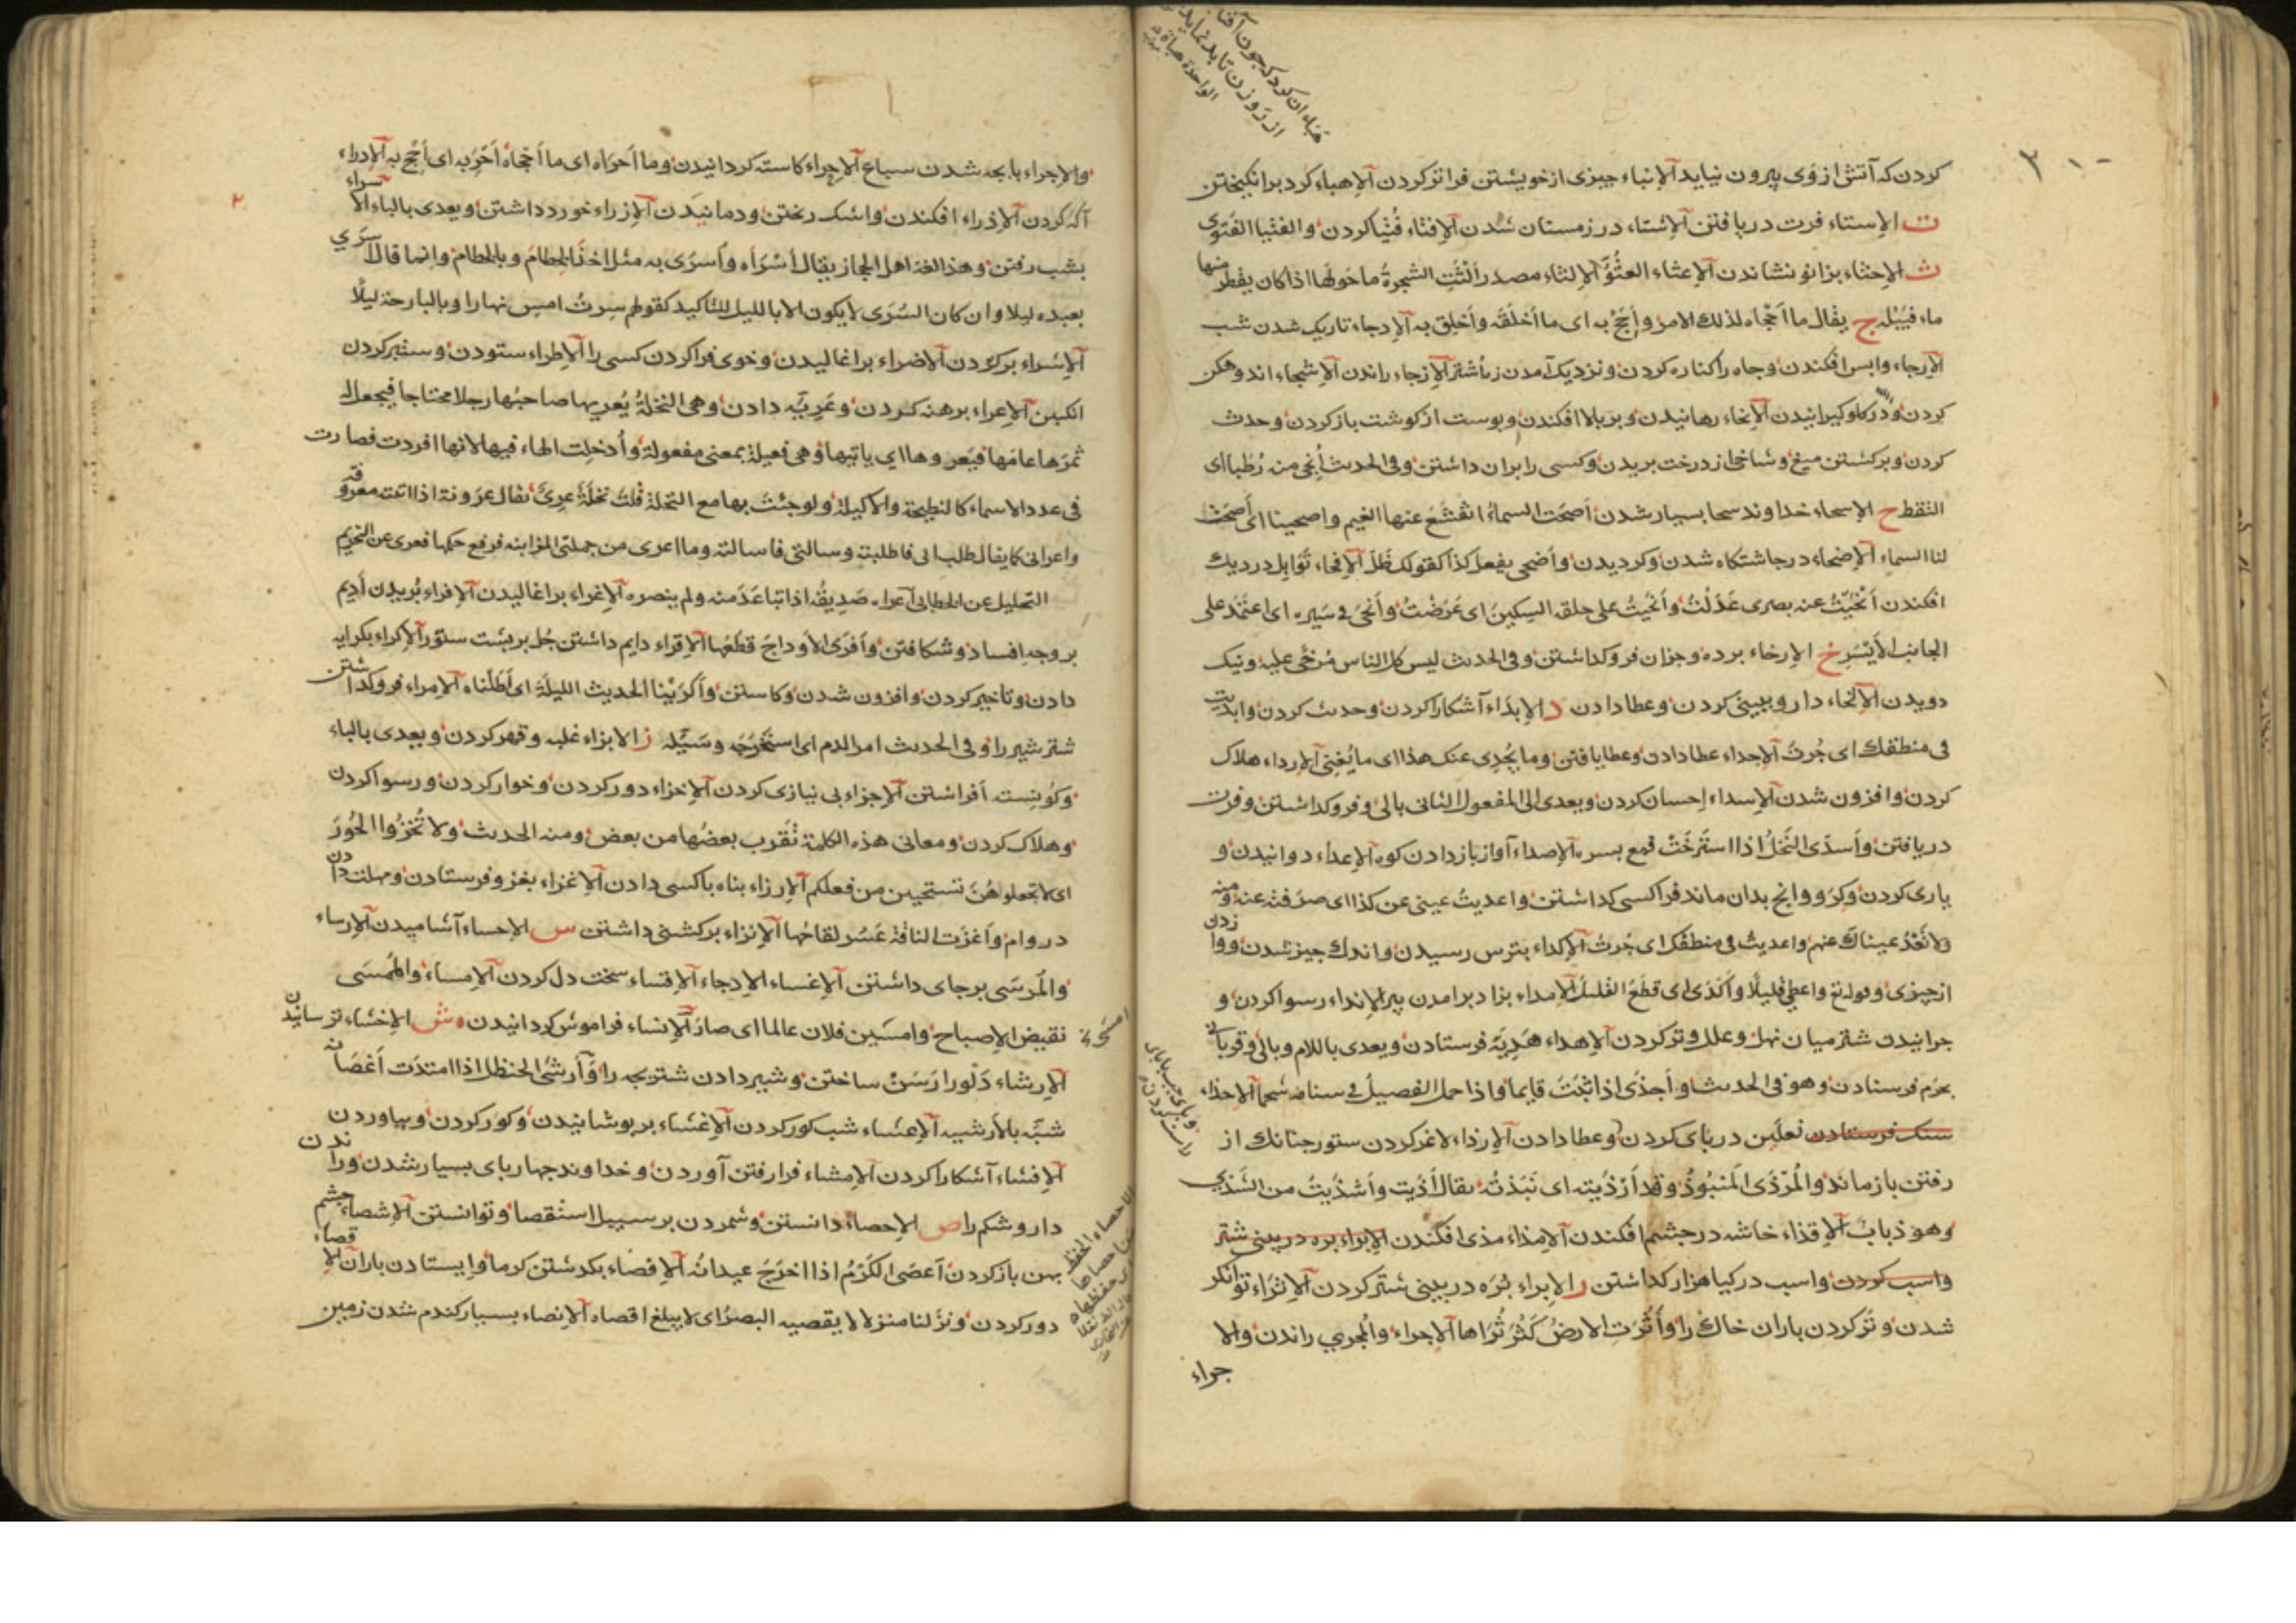 كردن كه آتش از وی بيرون نيايد الإنباء چيزی از خويشتن فراتر كردن الإهباء كرد برانكيختن
ت الإستاء فرت دريافتن الإشتاء در زمستان شدن الإفتاء فُتيا كردن والفتيا الفتوى
ث الإجثاء بزانو نشاندن الإعثاء العثوّ الإلثاء مصدر ألثت الشجرة ما حولها اذا كان يقطر منها
ماء فيبلّه ج يقال ما أحجاه لذلك الامر وأحج به اى ما أخلقه وأخلق به الإدجاء تاريك شدن شب
الإرجاء وا پس افكندن وچاه را كناره كردن ونزديك آمدن زه اشتر الإزجاء راندن الإشجاء اندوهكن
كردن و در كلو كيرانيدن الإنجاء رهانيدن وبر بالا افكندن وپوست از كوشت باز كردن وحدث
كردن وبركشتن ميغ وشاخها از درخت بريدن وكسى را بران داشتن وفى الحديث أنجى منه رُطبا اى
التقط ح الإسحاء خداوند سحا بسيار شدن أصحت السماء انقشع عنها الغيم واصحينا اى أصحت
لنا السماء الإضحاء در چاشتكاه شدن وكرديدن وأضحى يفعل كذا كقولك ظلّ الإفحاء توابل در ديك
افكندن أنحيت عنه بصرى عدلت وأنحيت على حلقه السكين اى عرضت وأنحى فى سيره اى اعتمد على
الجانب الأيسر خ الإرخاء برده وجزان فرو كداشتن وفى الحديث ليس كل الناس مرخى عليه ونيك
دويدن الإلخاء دارو ببينى كردن وعطا دادن د الإبداء آشكارا كردن وحدث كردن وابديت
فى منطقك اى جُرت الإجداء عطا دادن وعطا يافتن وما يجدى عنك هذا اى ما يغنى الإرداء هلاك
كردن وافزون شدن الإسداء إحسان كردن ويعدى الى المفعول الثانى بالى وفرو كداشتن وفرت
دريافتن وأسدى النخل اذا استرخت قمع بسره الإصداء آواز باز دادن كوه الإعداء دوانيدن و
يارى كردن وكَرَ ووانج بدان ماند فراكسى كداشتن واعديت عينى عن كذا اى صرفته عنه ومنه
ولا تعد عيناك عنهم واعديت فى منطقك اى جُرت الإكداء بترس رسيدن واندك چيز شدن ووا زدن
از چيزى وقوله تع واعطى قليلا وأكدى اى قطع القليل الإمداء بزاد برامدن پير الإنداء رسوا كردن و
چرانيدن شتر ميان نهل وعلل وتر كردن الإهداء هدية فرستادن ويعدى باللام وبالى وقربانى
بحرم فرستادن وهو فى الحديث وأجذى اذا ثبت قايما واذا حمل الفصيل فى سنامه شحما الإحذاء
سنك فرستادن نعلين در پاى كردن وعطا دادن الإرذاء لاغر كردن ستور چنانك از
رفتن باز ماند والمرذى المنبوذ وقد أرذيته اى نبذته يقال أذيت وأشذيت من الشذى
وهو ذباب الإقذاء خاشه در چشم افكندن الإمذاء مذى افكندن الإبراء بره در بينى شتر
واسب كردن واسب در كيا هزار كداشتن ر الإبراء بُره در بينى شتر كردن الإثراء توانكر
شدن وتر كردن باران خاك را وأثرت الارض كثر ثراها الإجراء والمجرى راندن والا
جراء
والإجراء با بچه شدن سباع الإحراء كاسته كردانيدن وما احراه اى ما أحجاه أحْرِ به اى أحْج به الإدراء
آكه كردن الإذراء افكندن واشك ريختن ودمانيدن الإزراء خورد داشتن ويعدى بالباء الاسراء
بشب رفتن وهذا لغة اهل الحجاز يقال أسراه وأسرى به مثل اخذ الخطام وبالخطام وانما قال أسرى
بعبده ليلا وان كان السرى لا يكون الا بالليل للتاكيد كقولهم سرت امس نهارا وبالبارحة ليلًا
الإشراء بر كردن الاضراء براغاليدن وخوى فرا كردن كسى را الإطراء ستودن وستبر كردن
انكبين الإعراء برهنه كردن وعَرِيّه دادن وهى النخلة يُعريها صاحبها رجلا محتاجا فيجعل له
ثمرها عامها فيعروها اى ياتيها وهى فعيلة بمعنى مفعولة وأُدخلت الهاء فيها لانها افردت فصارت
فى عدد الاسماء كالنطيحة والاكيلة ولو جئت بها مع النخلة قلت نخلة عرىّ يقال عروته اذا اتيته معروفه
واعرانى كما يقال طلب الى فاطلبته وسالنى فاسالته وما اعرى من جملتى المزابنه فرفع حكمها فعرى عن التحريم
التحليل عن الخطابى أعراه صديقه اذا تباعد منه ولم ينصره الإغراء براغاليدن الإفراء بُريدن أديم
بر وجه افساد وشكافتن وأفرى الأوداج قطعها الإقراء دايم داشتن جُل بر پشت ستور الإكراء بكرايه
دادن وتأخير كردن وافزون شدن وكاستن وأكرينا الحديث الليلة اى أطلناه الامراء فرو كداشتن
شتر شير را وفى الحديث امر الدم اى استخرجه وسيّله ز الابزاء غلبه وقهر كردن ويعدى بالباء
وكون پسته أفراشتن الإجزاء بى نيازى كردن الإخزاء دور كردن وخوار كردن ورسوا كردن
وهلاك كردن ومعانى هذه الكلمة تقرب بعضها من بعض ومنه الحديث ولا تُخزوا الحور
اى لا تجعلوهن تستحيين من فعلكم الإرزاء پناه باكسى دادن الإغزاء بغزو فرستادن ومهلت دادن
در وام وأغزت الناقة عسر لقاحها الإنزاء بركشنى داشتن س الإحساء آشاميدن الإرساء
والمرسى برجاى داشتن الإغساء الإدجاء الإقساء سخت دل كردن الإمساء والممسى
نقيض الإصباح وامسين فلان عالما اى صار الإنساء فراموش كردانيدن ش الإخشاء ترسانيدن
الإرشاء دَلْو را رَسَن ساختن وشير دادن شتر بچه را وأرشى الحنظل اذا امتدت أغصانه
شبّه بالأرشيه الإعشاء شب كور كردن الإغشاء بربوشانيدن وكور كردن وبياوردن
الإفشاء آشكارا كردن الإمشاء فرا رفتن آوردن وخداوند چهارپاى بسيار شدن وراندن
دارو شكم را ص الإحصاء دانستن وشمردن بر سبيل استقصا وتوانستن الإشصاء چشم
پهن باز كردن أعصى الكرم اذا اخرج عيدانه الإفصاء بكذشتن كرما وايستادن باران الإقصاء
دور كردن ونزلنا منزلا لا يقصيه البصر اى لا يبلغ اقصاه الانصاء بسيار كندم شدن زمين